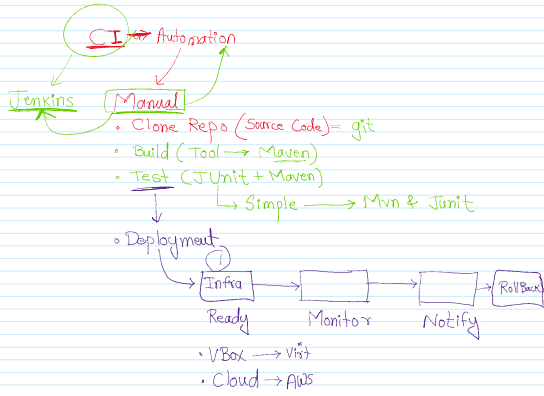 CI → Automation
Jenkins
Manual
• Clone Repo (Source Code) = git
• Build (Tool → Maven)
• Test (JUnit + Maven)
Simple → Mvn & Junit
• Deployment
1
Infra
RollBack
Ready Monitor Notify
• VBox →
• Cloud → AWS